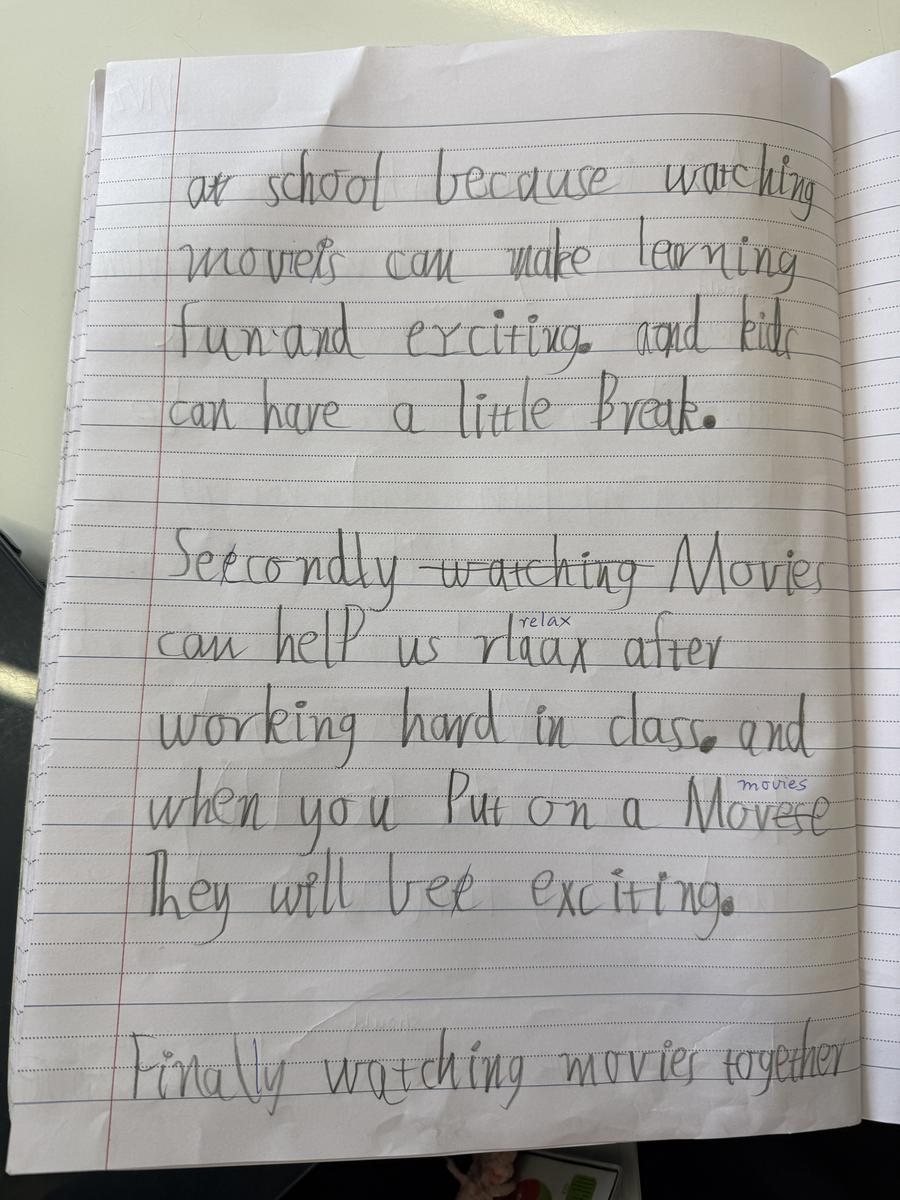 at school because watching
movies can make learning
fun and exciting. and kids
can have a little Break.
Secondly watching Movies
relax
can help us rlaax after
working hard in class. and
movies
when you Put on a Movese
They will bee exciting.
Finally watching movies together